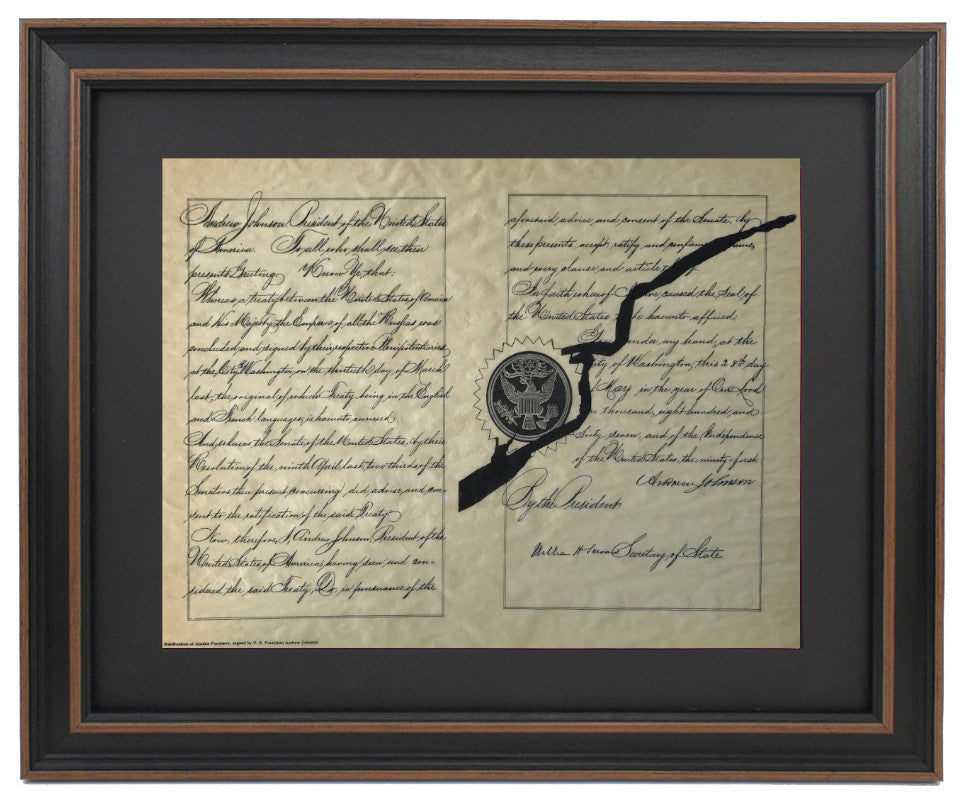 Andrew Johnson, President of the United States
of America. To all who shall see these
presents Greeting: Know Ye, that:
Whereas, a treaty between the United States of America
and His Majesty, the Emperor of all the Russias, was
concluded and signed by their respective Plenipotentiaries
at the City Washington, on the thirtieth day of March
last, the original of which Treaty being in the English
and French languages, is hereunto annexed
And whereas the Senate of the United States, by their
Resolution of the ninth April last, two thirds of the
Senators then present concurring did advise, and con-
sent to the ratification of the said Treaty
Now, therefore, I, Andrew Johnson, President of the
United States of America, having seen and con-
sidered the said Treaty, Do, in pursuance of the
aforesaid advice and consent of the Senate, by
these presents, accept, ratify, and confirm
and every clause and article
In faith whereof caused the Seal of
the United States hereunto affixed
under my hand, at the
City of Washington, this 28th day
May in the year of Our Lord
thousand, eight hundred and
Sixty seven, and of the Independence
of the United States, the ninety-first
Andrew Johnson
By the President:
William H Seward Secretary of State.
Ratification of Alaska Purchase, signed by U. S. President Andrew Johnson